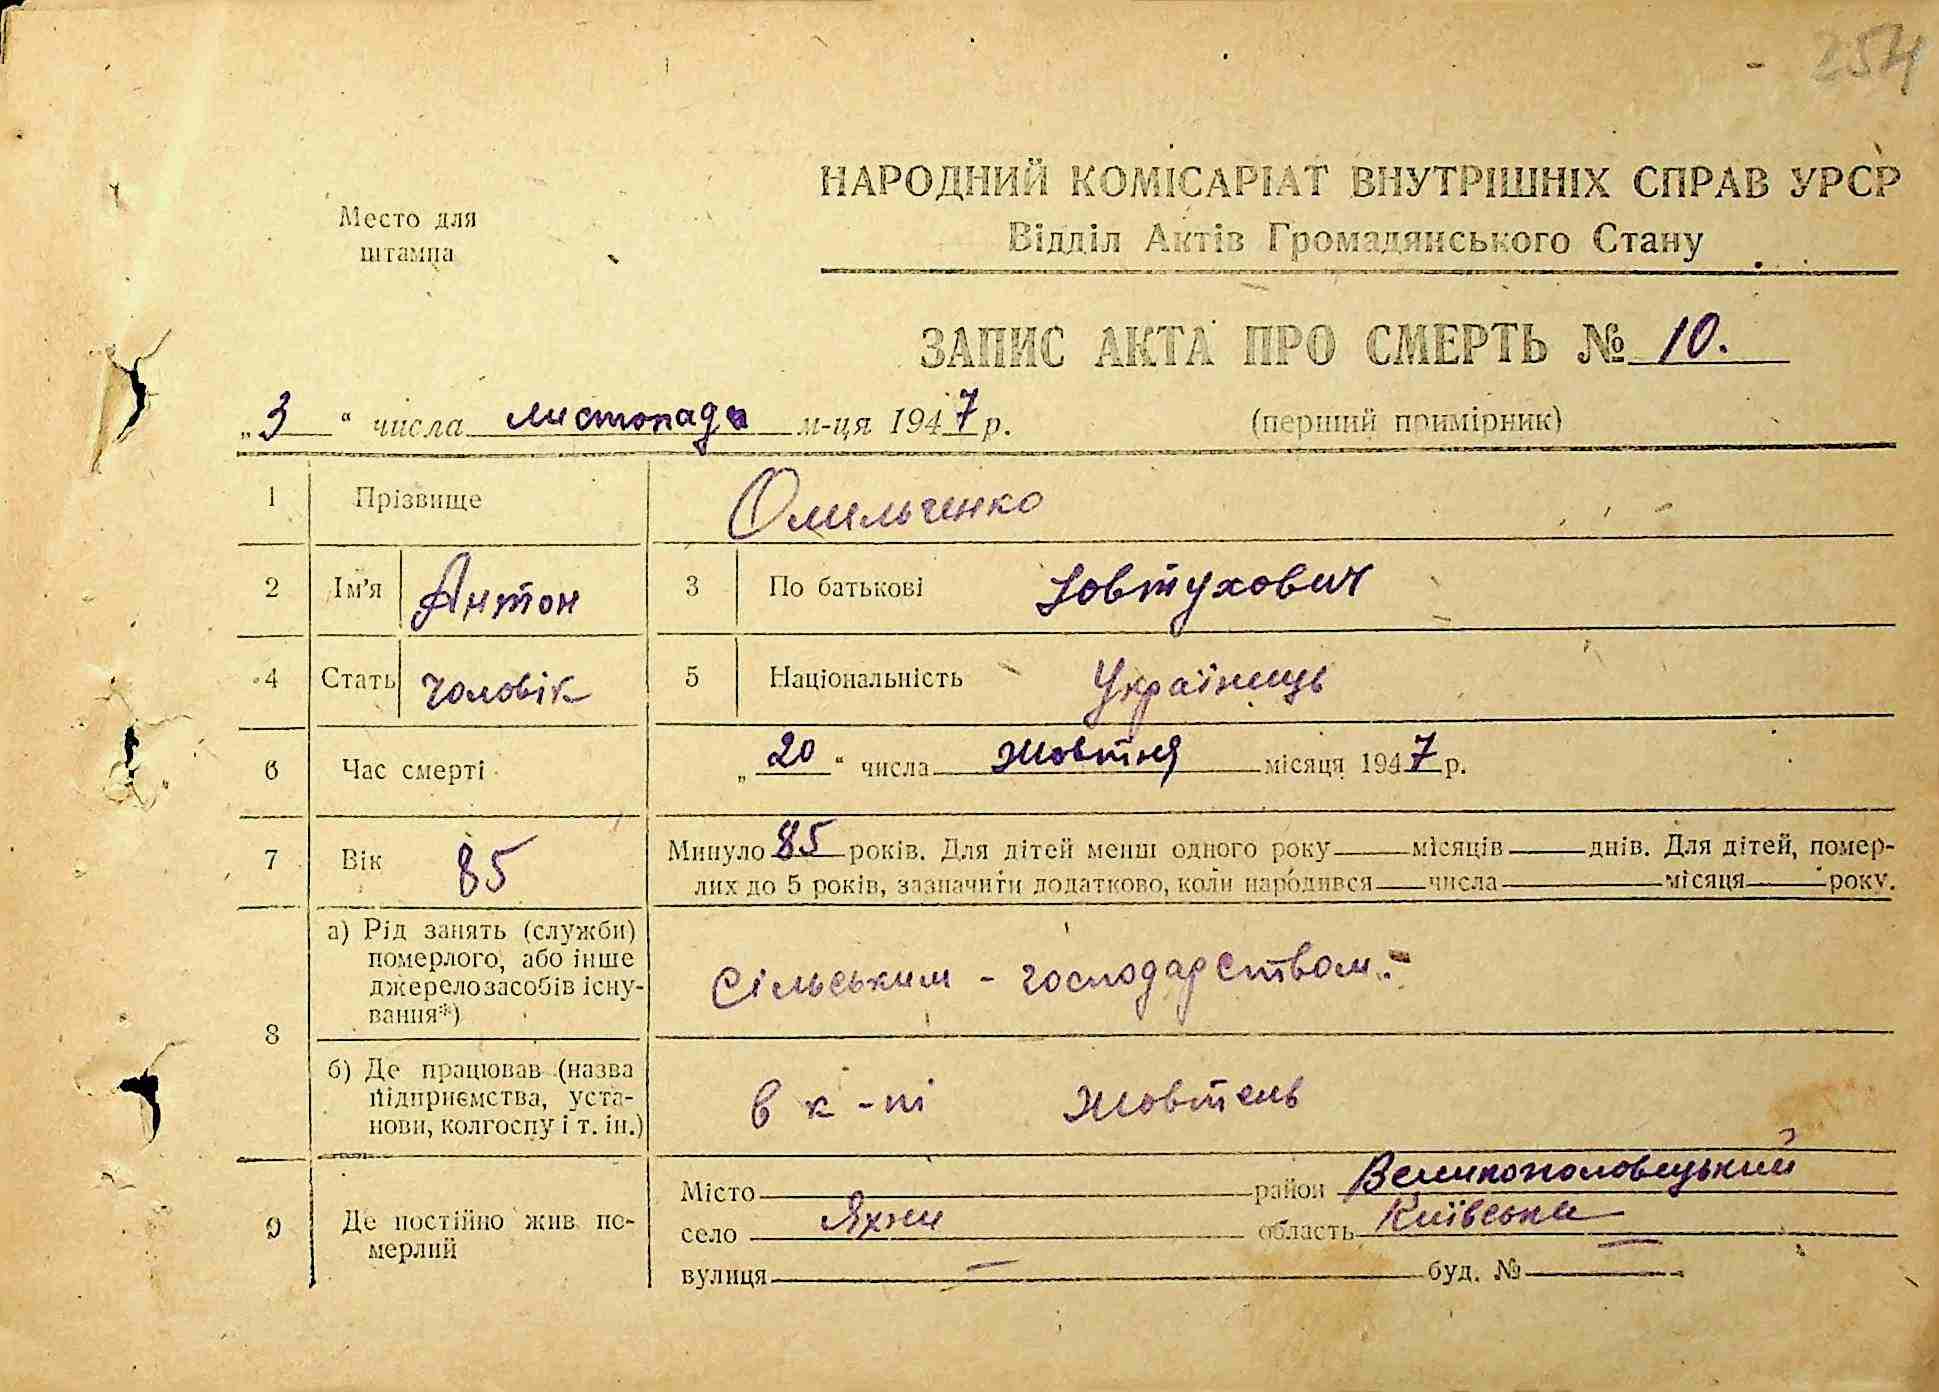 254
НАРОДНИЙ КОМІСАРІАТ ВНУТРІШНІХ СПРАВ УРСР
Место для
штампа
Відділ Актів Громадянського Стану
ЗАПИС АКТА ПРО СМЕРТЬ № 10.
„3“ числа листопада м-ця 1947 р. (перший примірник)
1 Прізвище Омильченко
2 Ім'я Антон 3 По батькові Іовтухович
4 Стать чоловік 5 Національність Українець
6 Час смерті „20“ числа жовтня місяця 1947 р.
7 Вік 85 Минуло 85 років. Для дітей менш одного року місяців днів. Для дітей, помер-
лих до 5 років, зазначити додатково, коли народився числа місяця року.
8 а) Рід занять (служби)
померлого, або інше
джерело засобів існу-
вання*)
Сільським - господарством.
б) Де працював (назва
підприємства, уста-
нови, колгоспу і т. ін.)
в к-пі Жовтень
9 Де постійно жив по-
мерлий
Місто район Великополовецький
село Яхни область Київська
вулиця — буд. № —